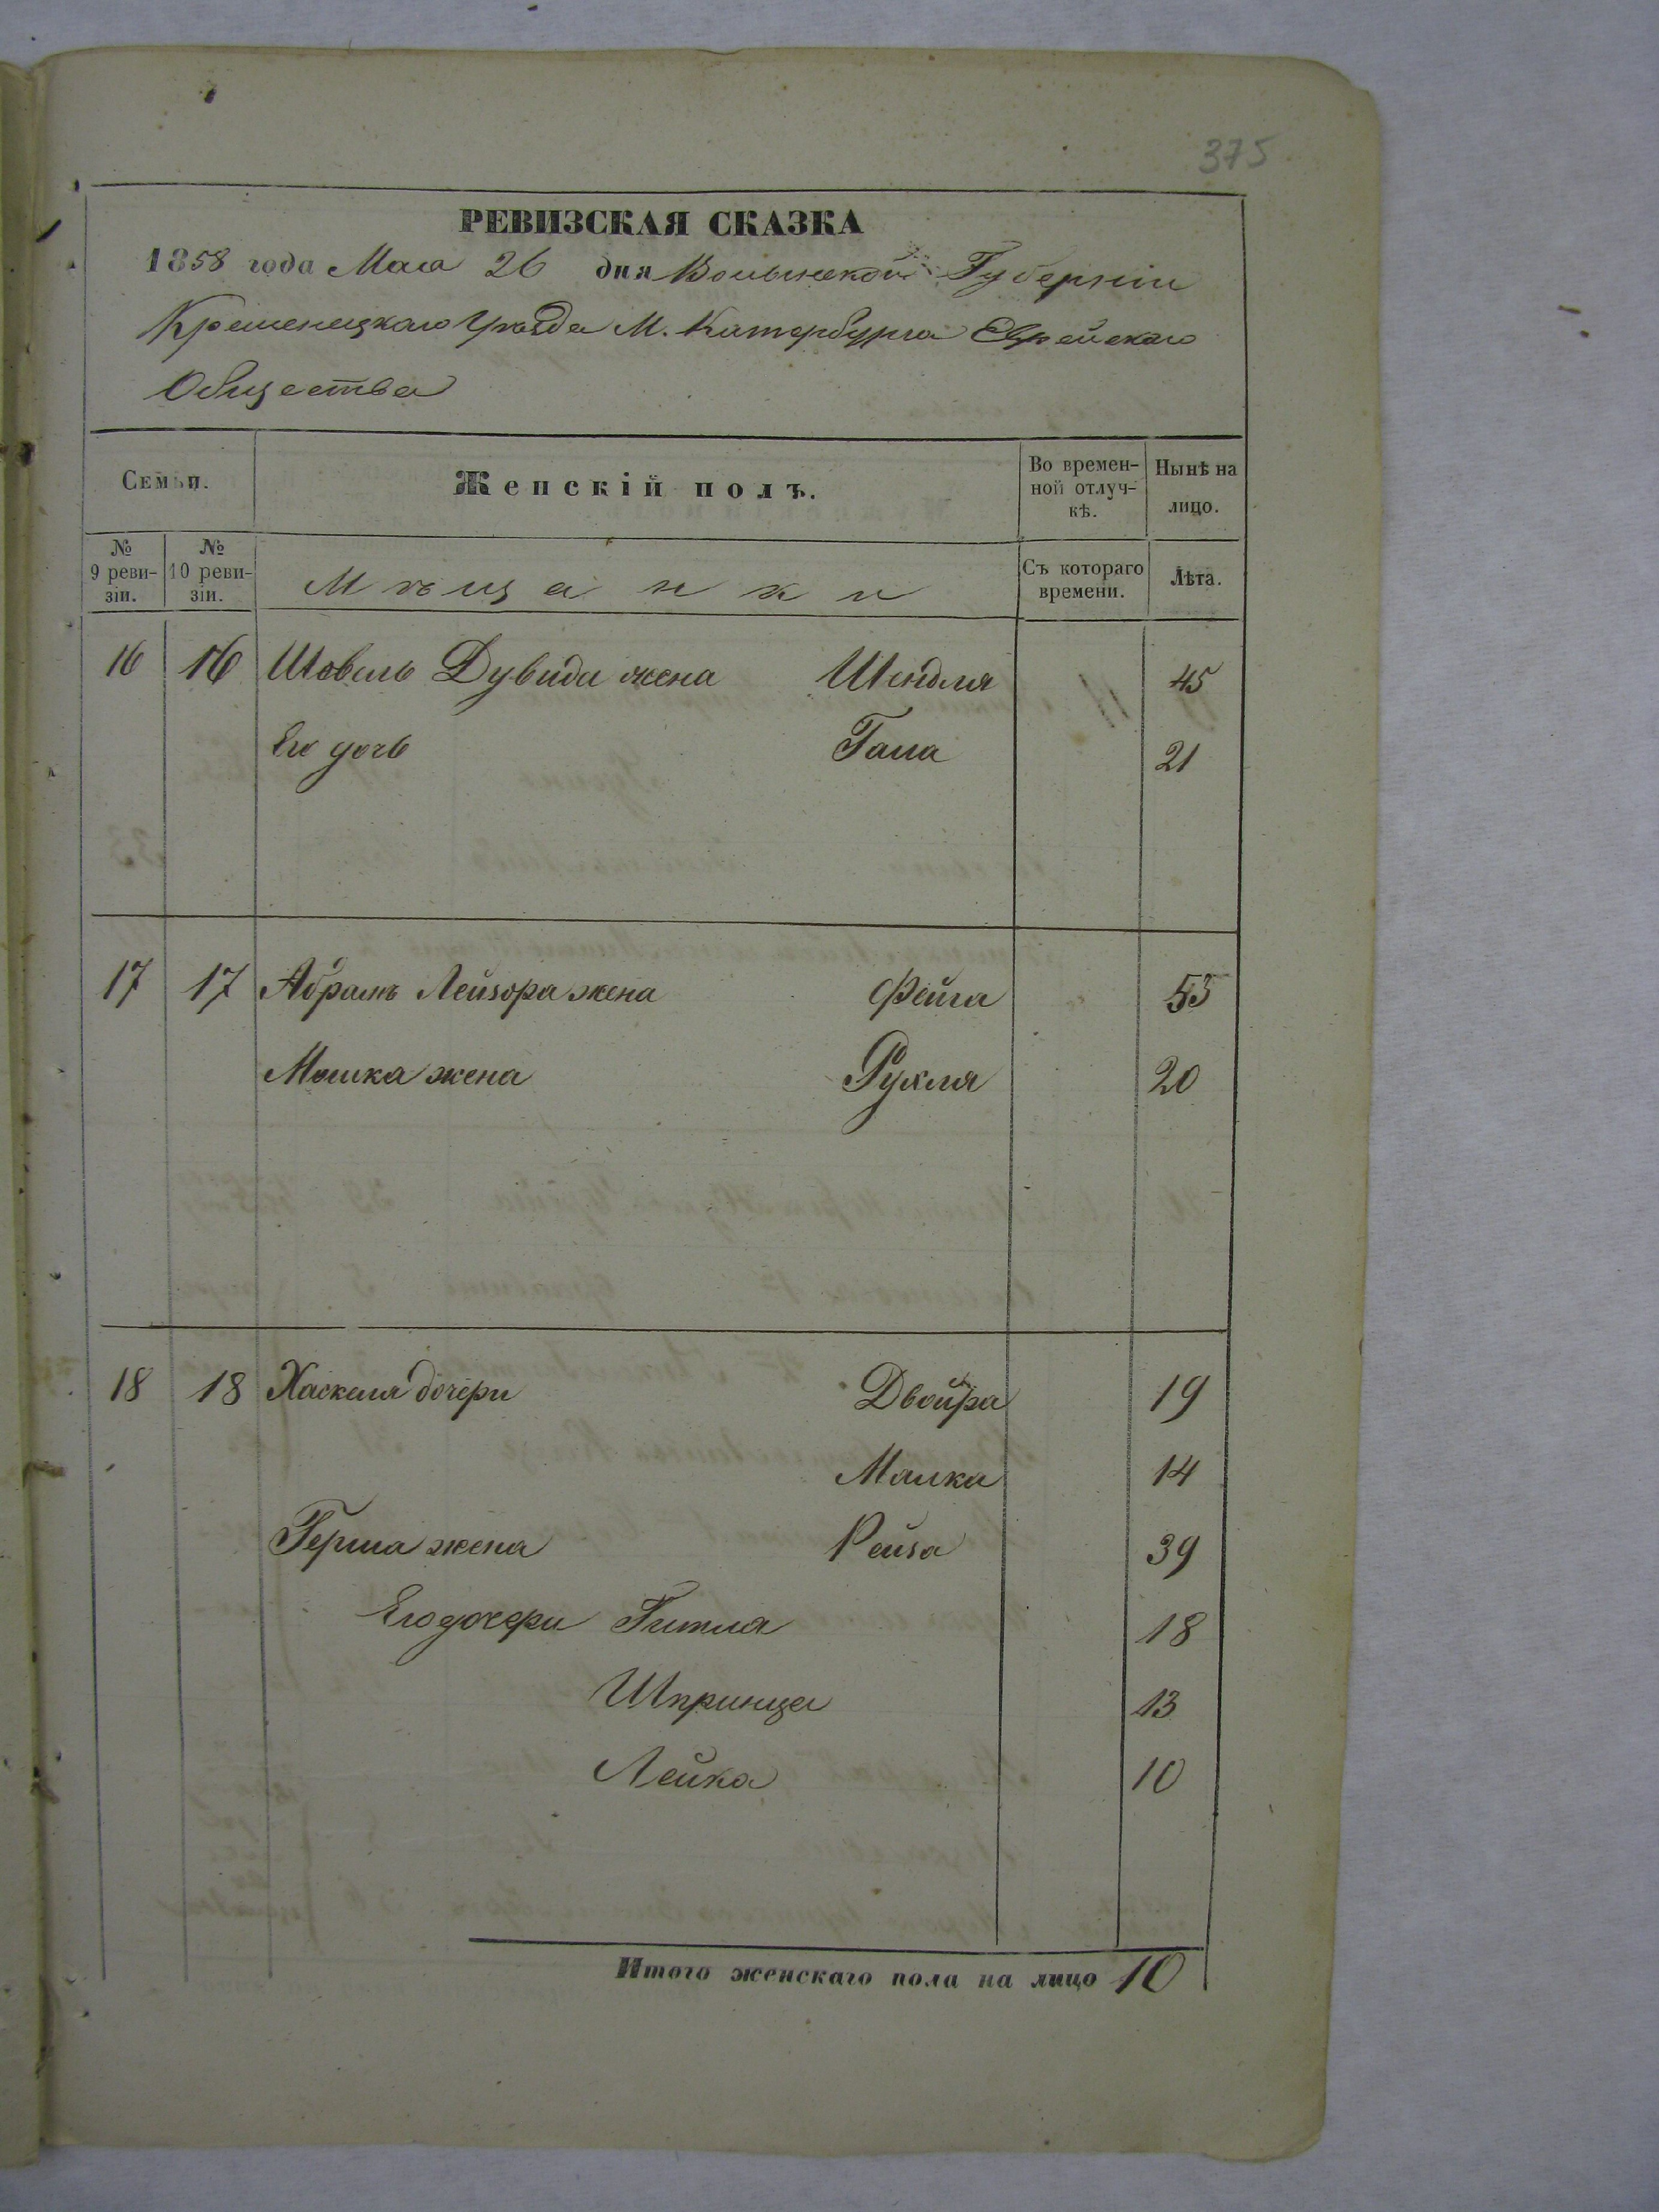 375
РЕВИЗСКАЯ СКАЗКА
1858 года Мая 26 дня Волынской Губерніи
Кременецкаго Уѣзда М. Катербурга Еврейскаго
Общества
Семьи. Женскій полъ. Во времен- ной отлуч- кѣ. Нынѣ на лицо.
№ 9 реви- зіи. № 10 реви- зіи. Мѣщанки Съ котораго времени. Лѣта.
16 16 Шовель Дувида жена Шендля 45
Его дочь Гала 21
17 17 Абрамъ Лейзора жена Фейга 53
Мошка жена Рухля 20
18 18 Хаскеля дочери Двойра 19
Малка 14
Герша жена Рейза 39
Его дочери Гитля 18
Шпринца 13
Лейка 10
Итого женскаго пола на лицо 10